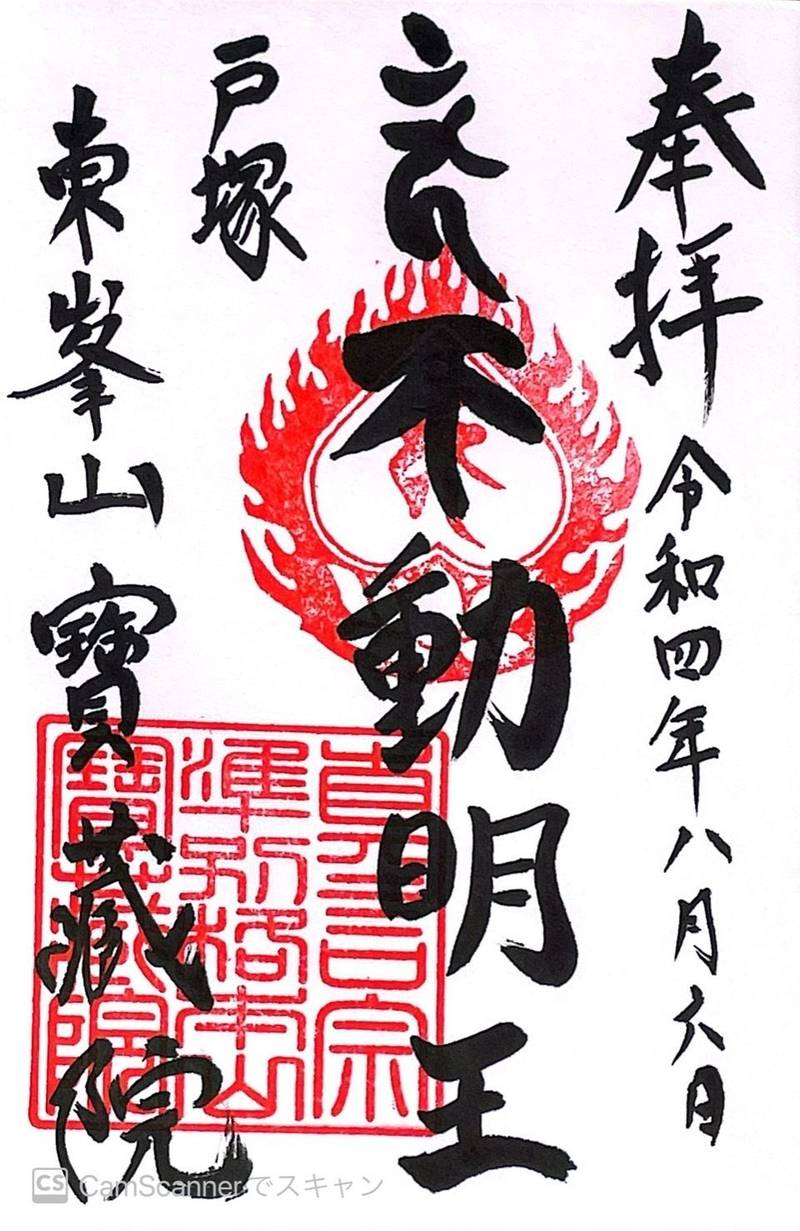 奉拝 令和四年八月六日
不動明王
戸塚
東峯山 寶蔵院
真言宗
準別格本山
寶蔵院
CS CamScannerでスキャン